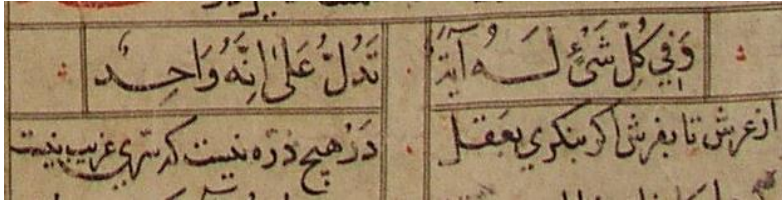 وَفِي كُلِّ شَيْءٍ لَهُ آيَةٌ تَدُلُّ عَلَىٰ اَنَّهُ وَاحِدٌ
از عرش تا بفرش اگر بنگری بعقل در هیچ ذره نیست که سری غریب نیست